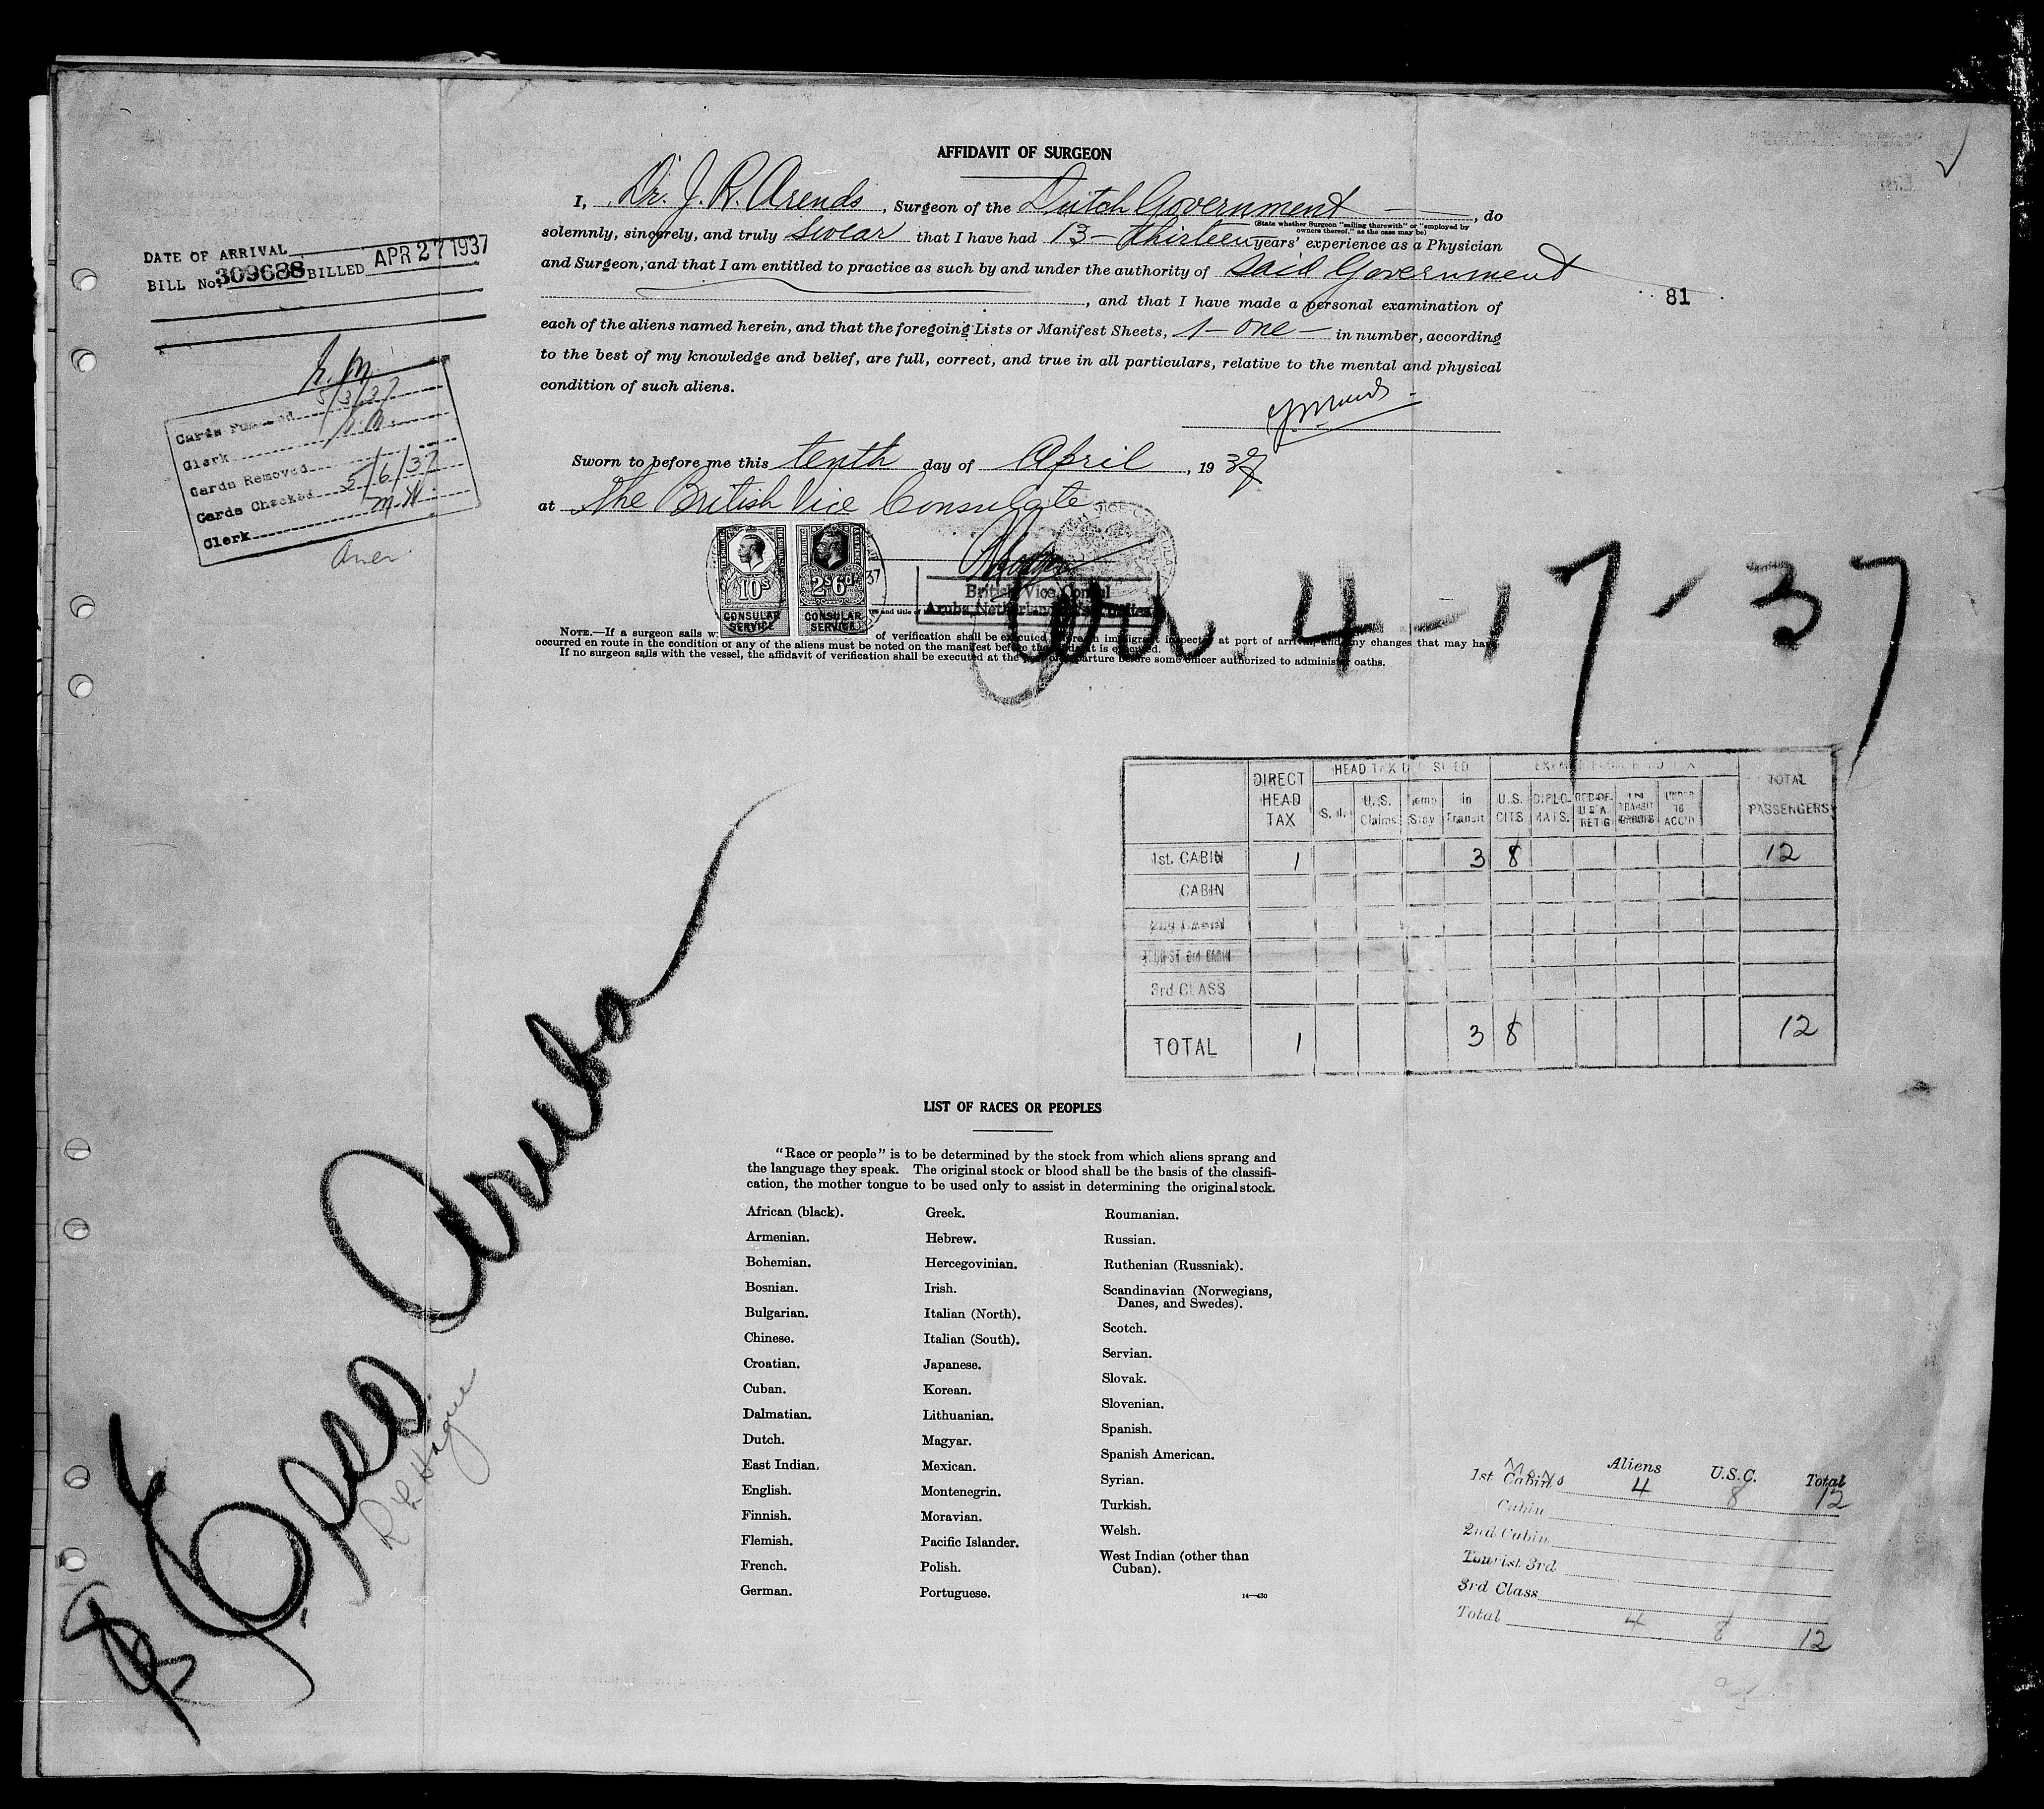 AFFIDAVIT OF SURGEON
I, Dr. J. R. Arends, Surgeon of the Dutch Government, do
(State whether Surgeon "sailing therewith" or "employed by
owners thereof," as the case may be)
solemnly, sincerely, and truly swear that I have had 13 - thirteen years' experience as a Physician
and Surgeon, and that I am entitled to practice as such by and under the authority of said Government
, and that I have made a personal examination of
each of the aliens named herein, and that the foregoing Lists or Manifest Sheets, 1 - one - in number, according
to the best of my knowledge and belief, are full, correct, and true in all particulars, relative to the mental and physical
condition of such aliens.
Sworn to before me this tenth day of April, 1937
at The British Vice Consulate
10s 2s6d 37
CONSULAR SERVICE CONSULAR SERVICE
British Vice Consul
Aruba, Netherland
NOTE.—If a surgeon sails w of verification shall be executed immigrant inspector at port of arrival, and any changes that may have
occurred en route in the condition of any of the aliens must be noted on the manifest before the is executed.
If no surgeon sails with the vessel, the affidavit of verification shall be executed at the departure before some officer authorized to administer oaths.
DATE OF ARRIVAL
BILL No. 309688 BILLED APR 27 1937
81
Cards 5/3/37
Clerk
Cards Removed
Cards Checked 5/6/37
Clerk M.H.
Arr. 4-17-37
DIRECT HEAD TAX
HEAD TAX
U.S. Claims
Temp Stay
in Transit
U.S. CITS
DIPLOMATS.
TOTAL PASSENGERS
1st. CABIN 1 3 8 12
CABIN
3rd CLASS
TOTAL 1 3 8 12
Esso Aruba
R L Hague
LIST OF RACES OR PEOPLES
"Race or people" is to be determined by the stock from which aliens sprang and
the language they speak. The original stock or blood shall be the basis of the classifi-
cation, the mother tongue to be used only to assist in determining the original stock.
African (black).
Armenian.
Bohemian.
Bosnian.
Bulgarian.
Chinese.
Croatian.
Cuban.
Dalmatian.
Dutch.
East Indian.
English.
Finnish.
Flemish.
French.
German.
Greek.
Hebrew.
Hercegovinian.
Irish.
Italian (North).
Italian (South).
Japanese.
Korean.
Lithuanian.
Magyar.
Mexican.
Montenegrin.
Moravian.
Pacific Islander.
Polish.
Portuguese.
Roumanian.
Russian.
Ruthenian (Russniak).
Scandinavian (Norwegians,
Danes, and Swedes).
Scotch.
Servian.
Slovak.
Slovenian.
Spanish.
Spanish American.
Syrian.
Turkish.
Welsh.
West Indian (other than
Cuban).
14—430
Aliens U.S.C. Total
1st Cabin 4 8 12
Cabin
2nd Cabin
Tourist 3rd
3rd Class
Total 4 8 12